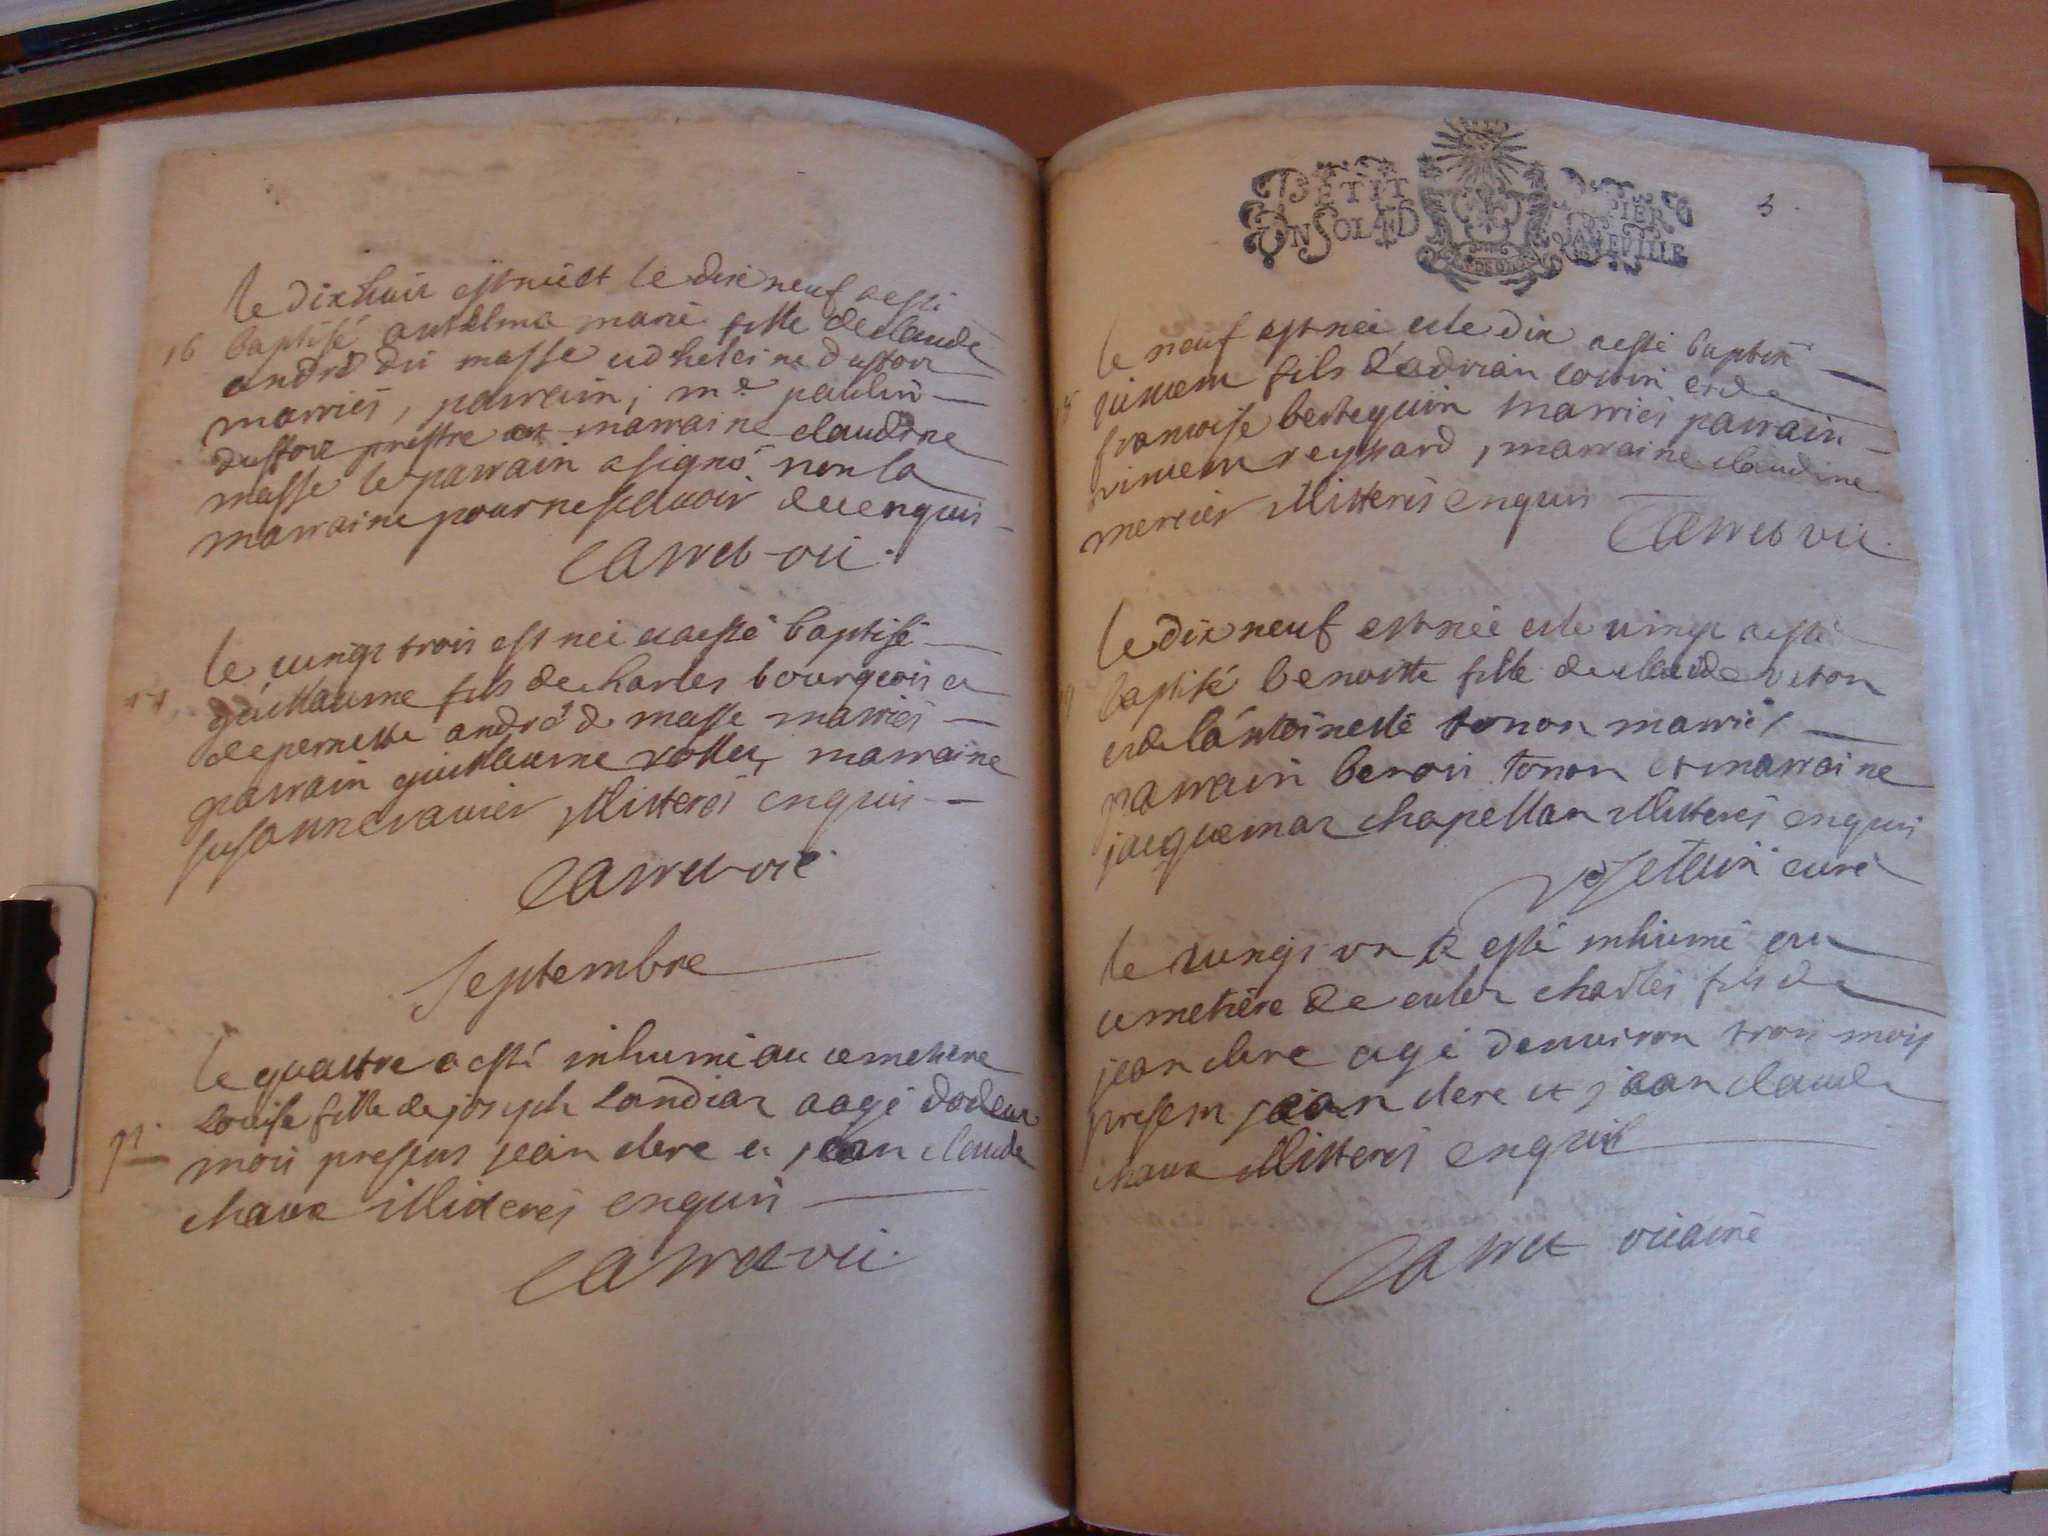 le dixhuit est nüe et le dix neuf a esté
16 baptisé anthelma marie fille de claude
andré du masse et d heleine dustour
marriés, parrain, m.e paulin
dustour prestre et marraine claudine
masse le parrain a signé non la
marraine pour ne scavoir de ce enquis
Carret vic.
le vingt trois est néé et a esté baptisé
guillaume fils de charles bourgeois et
de pernette andré de masse marriés
parrain guillaume rollet, marraine
susanne ravier illitterés enquis
Carret vic
Septembre
le quattre a esté inhumé au cemetiere
Louise fille de joseph Landiar aagé dodeux
mois presens jean clere et jean claude
chaux illiterés enquis
Carret vic.
PETIT PAPIER
UN SOL 4 D LA FEUILLE
3.
le neuf est néé et le dix a esté baptisé
vincent fils d'adrian et de
francoise bertequin marriés parrain
vincent reynard, marraine claudine
mercier illitterés enquis
Carret vic.
le dix neuf est néé et le vingt a esté
baptisé benoitte fille de claude
et de l'antoinette tonon marriés
parrain benoit tonon et marraine
jacquemar chapellan illitterés enquis
curé
le vingt un a esté inhumé au
cemetiere de charles fils de
jean clere agé denviron trois mois
present jean clere et jean claude
chaux illitterés enquis
Carret vicaire